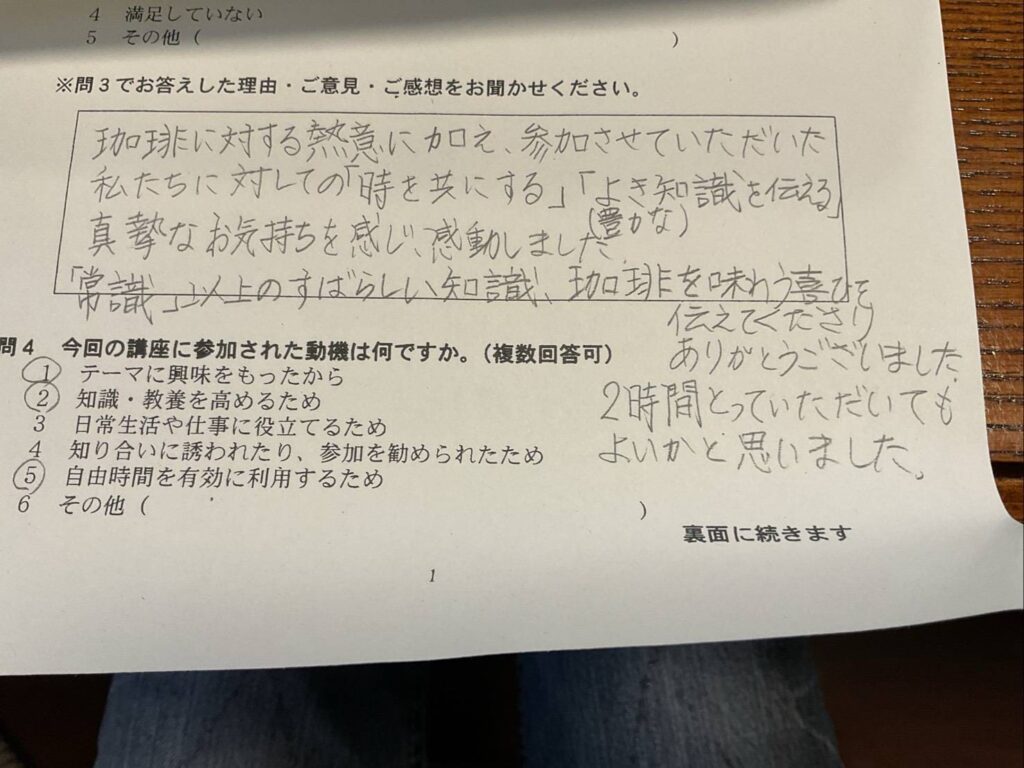 4 満足していない
5 その他（　）
※問3でお答えした理由・ご意見・ご感想をお聞かせください。
珈琲に対する熱意に加え、参加させていただいた
私たちに対しての「時を共にする」「よき知識を伝える」
(豊かな)
真摯なお気持ちを感じ、感動しました。
「常識」以上のすばらしい知識、珈琲を味わう喜びを
伝えてくださり
ありがとうございました。
2時間とっていただいても
よいかと思いました。
問4 今回の講座に参加された動機は何ですか。（複数回答可）
1 テーマに興味をもったから
2 知識・教養を高めるため
3 日常生活や仕事に役立てるため
4 知り合いに誘われたり、参加を勧められたため
5 自由時間を有効に利用するため
6 その他（　）
裏面に続きます
1